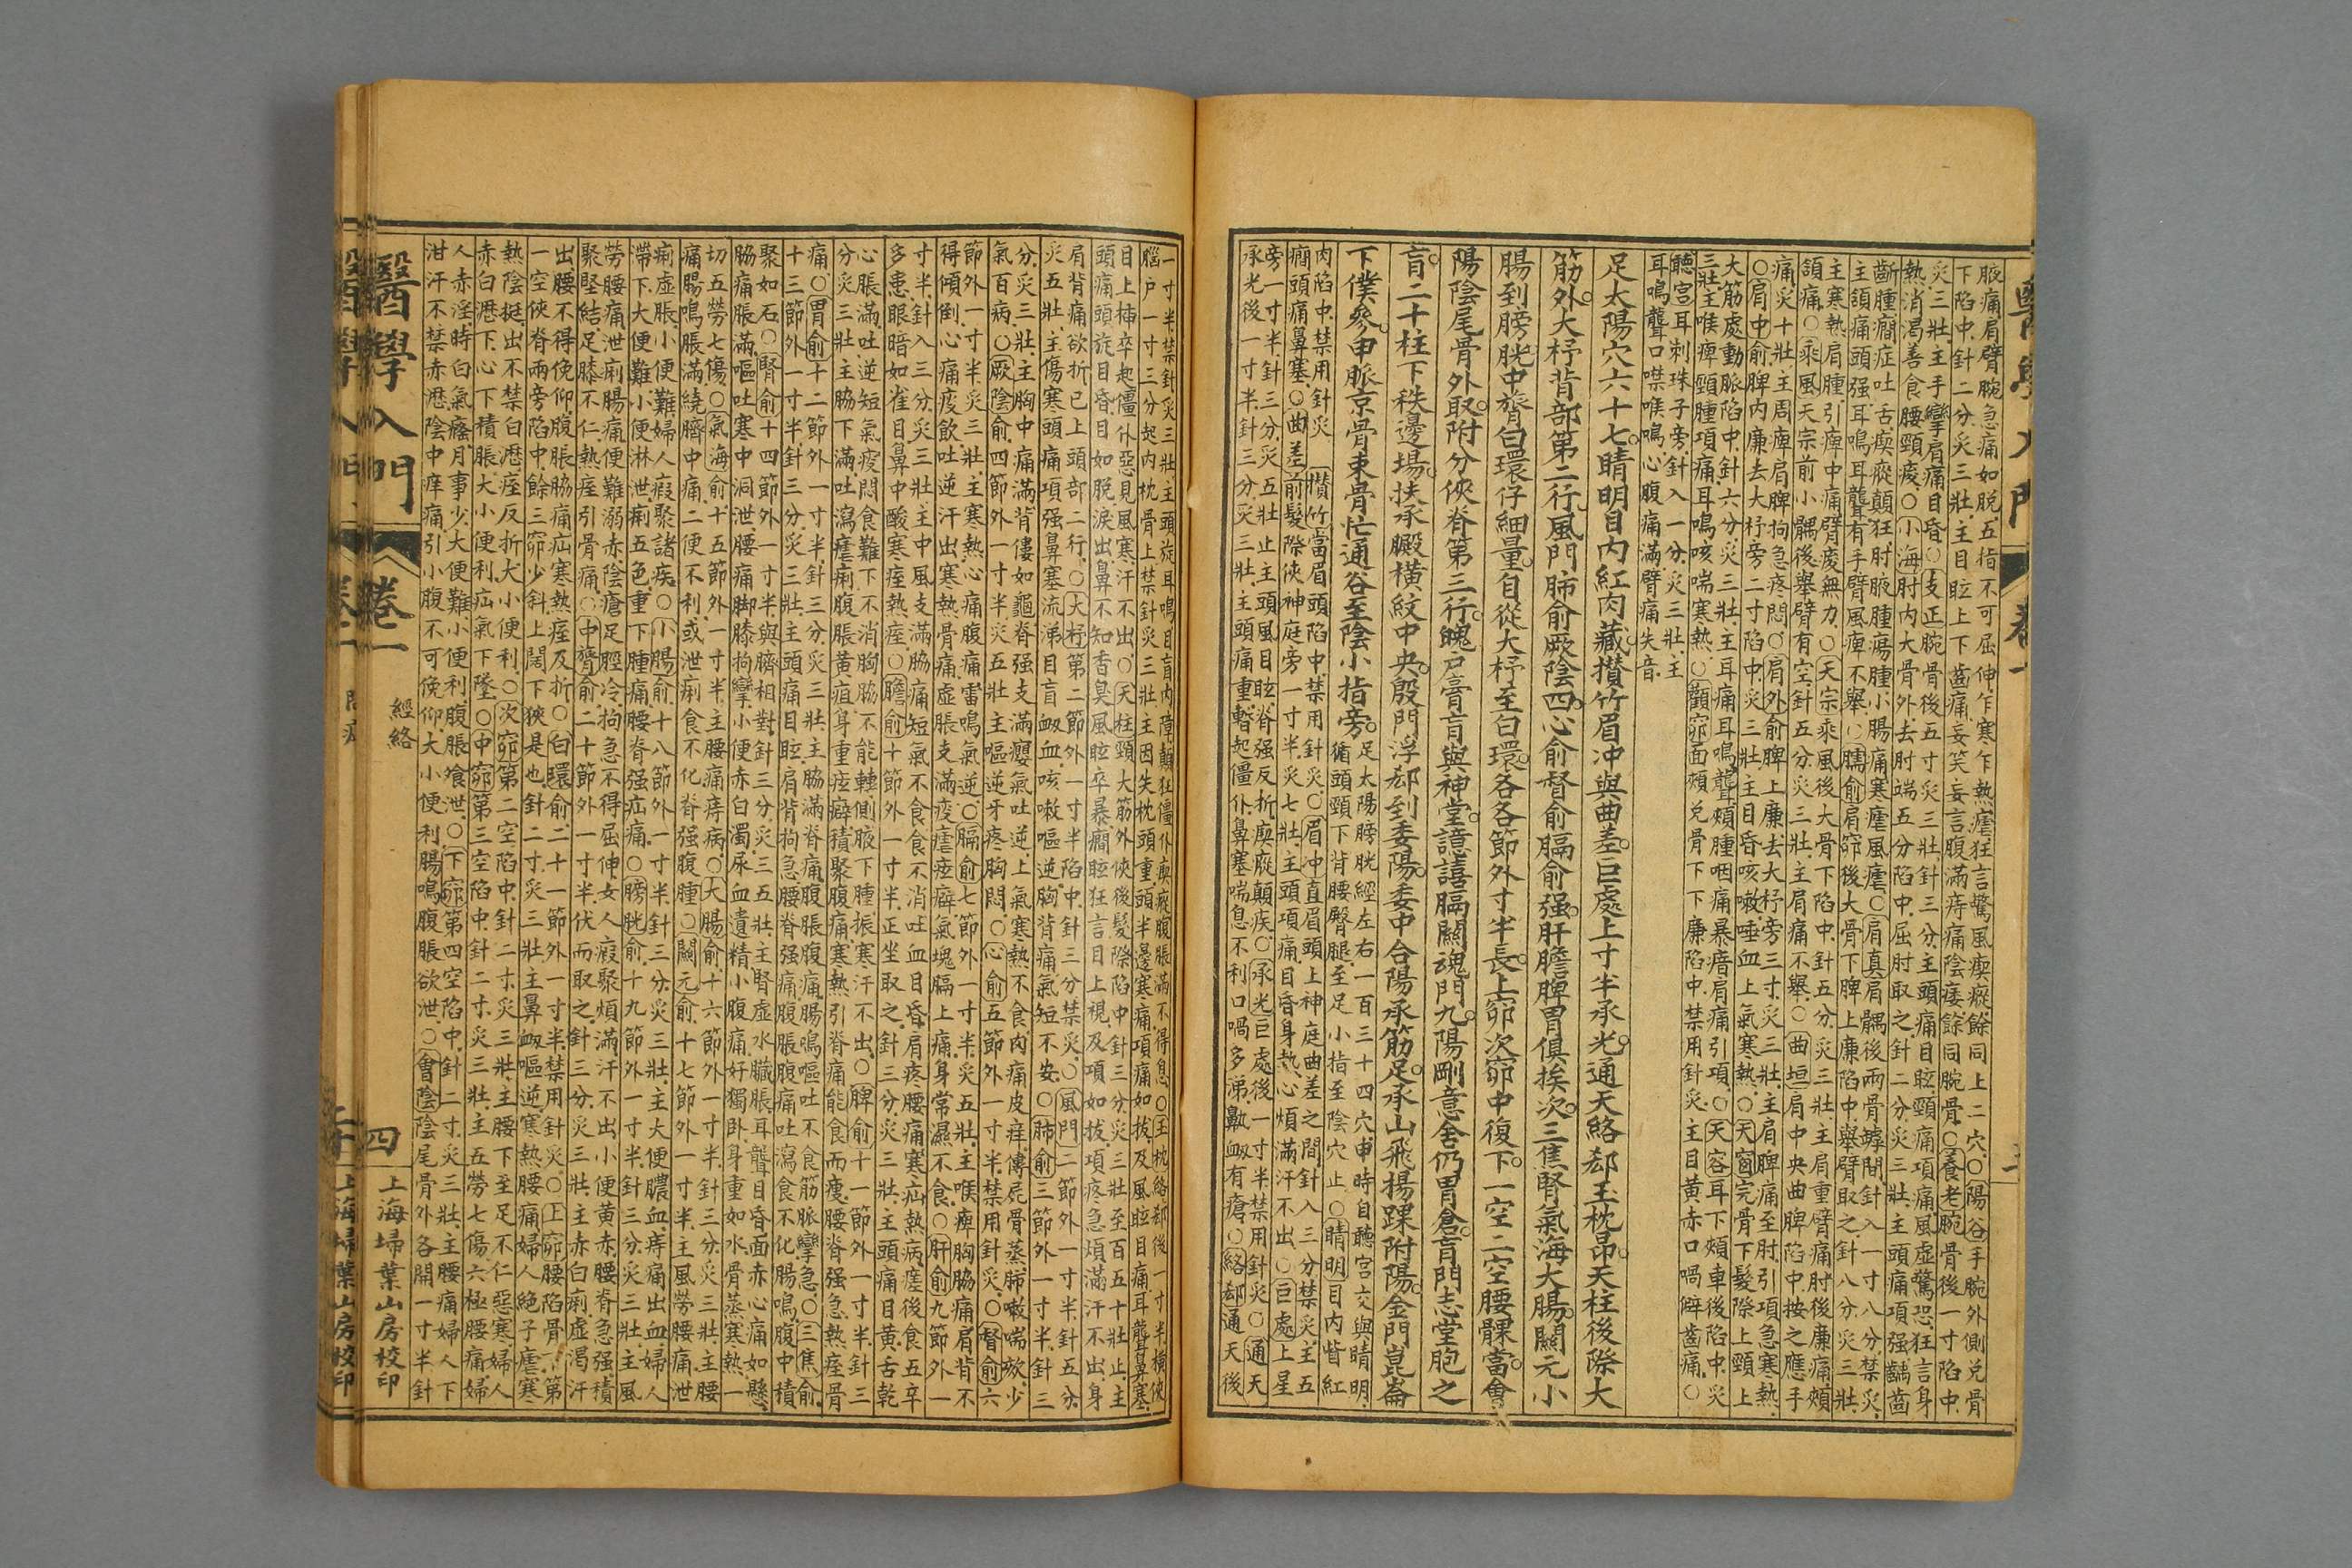 腋痛肩臂腕急痛如脱五指不可屈伸乍寒乍熱瘧狂言驚風瘈瘲餘同上二穴○陽谷手腕外側兌骨
下陷中針二分灸三壯主目眩上下齒痛妄笑妄言腹滿痔痛陰痿餘同腕骨○養老腕骨後一寸陷中
灸三壯主手攣肩痛目昏○支正腕骨後五寸灸三壯針三分主頭痛目眩頸痛項痛風虛驚恐狂言身
熱消渴善食腰頸痠○小海肘內大骨外去肘端五分陷中屈肘取之針二分灸三壯主頭痛項强齲齒
齗腫癎症吐舌瘈瘲顛狂肘腋腫瘍腫小腸痛寒瘧風瘧○肩真肩髃後兩骨罅間針入一寸八分禁灸
主頷痛頭强耳鳴耳聾有手臂風痺不舉○臑俞肩窌後大骨下脾上廉陷中舉臂取之針八分灸三壯
主寒熱肩腫引痺中痛臂痠無力○天宗乘風後大骨下陷中針五分灸三壯主肩重臂痛肘後廉痛頰
頷痛○乘風天宗前小髃後舉臂有空針五分灸三壯主肩痛不舉○曲垣肩中央曲脾陷中按之應手
痛灸十壯主周痺肩脾拘急疼悶○肩外俞脾上廉去大杼旁三寸灸三壯主肩脾痛至肘引項急寒熱
○肩中俞脾內廉去大杼旁二寸陷中灸三壯主目昏咳嗽唾血上氣寒熱○天窗完骨下髮際上頸上
大筋處動脈陷中針六分灸三壯主耳痛耳鳴聾頰腫咽痛暴瘖肩痛引項○天容耳下頰車後陷中灸
三壯主喉痺頸腫項痛耳鳴咳喘寒熱○顴窌面頰兌骨下下廉陷中禁用針灸主目黃赤口喎僻齒痛○
聽宮耳刺珠子旁針入一分灸三壯主
耳鳴聾口噤喉鳴心腹痛滿臂痛失音
足太陽穴六十七睛明目內紅肉藏攅竹眉冲與曲差巨處上寸半承光通天絡郄玉枕昂天柱後際大
筋外大杼背部第二行風門肺俞厥陰四心俞督俞膈俞强肝膽脾胃俱挨次三焦腎氣海大腸關元小
腸到膀胱中膂白環仔細量自從大杼至白環各各節外寸半長上窌次窌中復下一空二空腰髁當會
陽陰尾骨外取附分俠脊第三行魄戶膏肓與神堂譩譆膈關魂門九陽剛意舍仍胃倉肓門志堂胞之
肓二十柱下秩邊場扶承臋橫紋中央殷門浮郄到委陽委中合陽承筋足承山飛揚踝附陽金門崑崙
下僕參申脈京骨束骨忙通谷至陰小指旁
足太陽膀胱經左右一百三十四穴申時自聽宮交與睛明
循頭頸下背腰臀腿至足小指至陰穴止○睛明目內眥紅
肉陷中禁用針灸 攅竹當眉頭陷中禁用針灸○眉冲直眉頭上神庭曲差之間針入三分禁灸主五
癎頭痛鼻塞○曲差前髮際俠神庭旁一寸半灸七壯主頭項痛目昏身熱心煩滿汗不出○巨處上星
旁一寸半針三分灸五壯止主頭風目眩脊强反折瘈瘲顛疾○承光巨處後一寸半禁用針灸○通天
承光後一寸半針三分灸三壯主頭痛重暫起僵仆鼻塞喘息不利口喎多涕鼽衂有瘡○絡郄通天後
一寸半禁針灸三壯主頭旋耳鳴目盲內障顛狂僵仆瘈瘲腹脹滿不得息○玉枕絡郄後一寸半橫俠
腦戶一寸三分起肉枕骨上禁針灸三壯主因失枕頭重頭半邊寒痛項痛如拔及風眩目痛耳聾鼻塞
目上插卒起僵仆惡見風寒汗不出○天柱頸大筋外俠後髮際陷中針三分灸三壯至百五十壯止主
頭痛頭旋目昏目如脱淚出鼻不知香臭風眩卒暴癎眩狂言目上視及項如拔項疼急煩滿汗不出身
肩背痛欲折已上頭部二行○大杼第二節外一寸半陷中針三分禁灸○風門二節外一寸半針五分
灸五壯主傷寒頭痛項强鼻塞流涕目盲衂血咳嗽嘔逆胸背痛氣短不安○肺俞三節外一寸半針三
分灸三壯主胸中痛滿背僂如龜脊强支滿癭氣吐逆上氣寒熱不食肉痛皮痒傳屍骨蒸肺嗽喘欬少
氣百病○厥陰俞四節外一寸半灸五壯主嘔逆牙疼胸悶○心俞五節外一寸半禁用針灸○督俞六
節外一寸半灸三壯主寒熱心痛腹痛雷鳴氣逆○膈俞七節外一寸半灸五壯主喉痺胸脇痛肩背不
得傾倒心痛痰飲吐逆汗出寒熱骨痛虛脹支滿痰瘧痃癖氣塊膈上痛身常濕不食○肝俞九節外一
寸半針入三分灸三壯主中風支滿脇痛短氣不食食不消吐血目昏肩疼腰痛寒疝熱病瘥後食五辛
多患眼暗如雀目鼻中酸寒痓熱痙○膽俞十節外一寸半正坐取之針三分灸三壯主頭痛目黃舌乾
心脹滿吐逆短氣痰悶食難下不消胸脇不能轉側腋下腫振寒汗不出○脾俞十一節外一寸半針三
分灸三壯主脇下滿吐瀉瘧痢腹脹黃疸身重痃癖積聚腹痛寒熱引脊痛能食而瘦腰脊强急熱痓骨
痛○胃俞十二節外一寸半針三分灸三壯主脇滿脊痛腹脹腹痛腸鳴嘔吐不食筋脈攣急○三焦俞
十三節外一寸半針三分灸三壯主頭痛目眩肩背拘急腰脊强痛腹脹腹痛吐瀉食不化腸鳴腹中積
聚如石○腎俞十四節外一寸半與臍相對針三分灸三五壯主腎虛水臟脹耳聾目昏面赤心痛如懸
脇痛脹滿嘔吐寒中洞泄腰痛脚膝拘攣小便赤白濁尿血遺精小腹痛好獨卧身重如水骨蒸寒熱一
切五勞七傷○氣海俞十五節外一寸半主腰痛痔病○大腸俞十六節外一寸半針三分灸三壯主腰
痛腸鳴脹滿繞臍中痛二便不利或泄痢食不化脊强腹腫○關元俞十七節外一寸半主風勞腰痛泄
痢虛脹小便難婦人瘕聚諸疾○小腸俞十八節外一寸半針三分灸三壯主大便膿血痔痛出血婦人
滯下大便難小便淋泄痢五色重下腫痛腰脊强疝痛○膀胱俞十九節外一寸半針三分灸三壯主風
勞腰痛泄痢腸痛便難溺赤陰瘡足脛冷拘急不得屈伸女人瘕聚煩滿汗不出小便黃赤腰脊急强積
聚堅結足膝不仁熱痓引骨痛○中膂俞二十節外一寸半伏而取之針三分灸三壯主赤白痢虛渴汗
出腰不得俛仰腹脹脇痛疝寒熱痓反折○白環俞二十一節外一寸半禁用針灸○上窌腰陷骨下第
一空俠脊兩旁陷中餘三窌少斜上闊下狹是也針二寸灸三壯主鼻衂嘔逆寒熱腰痛婦人絶子瘧寒
熱陰挺出不禁白瀝痓反折大小便利○次窌第二空陷中針二寸灸三壯主腰下至足不仁惡寒婦人
赤白瀝下心下積脹大小便利疝氣下墜○中窌第三空陷中針二寸灸三壯主五勞七傷六極腰痛婦
人赤淫時白氣癃月事少大便難小便利腹脹飧泄○下窌第四空陷中針二寸灸三壯主腰痛婦人下
泔汗不禁赤瀝陰中痒痛引小腹不可俛仰大小便利腸鳴腹脹欲泄○會陰陰尾骨外各開一寸半針
醫學入門
卷一
經絡
四
上海埽葉山房校印